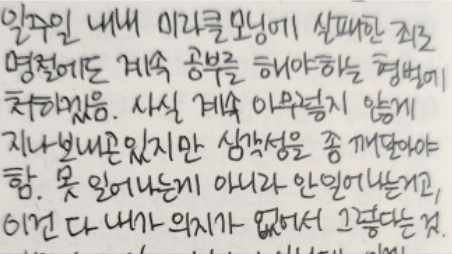 일주일 내내 미라클모닝에 실패한 죄로
명절에도 계속 공부를 해야하는 형벌에
처하겠음. 사실 계속 아무렇지 않게
지나보내곤있지만 심각성을 좀 깨달아야
함. 못 일어나는게 아니라 안일어나는거고,
이건 다 내가 의지가 없어서 그렇다는 것.